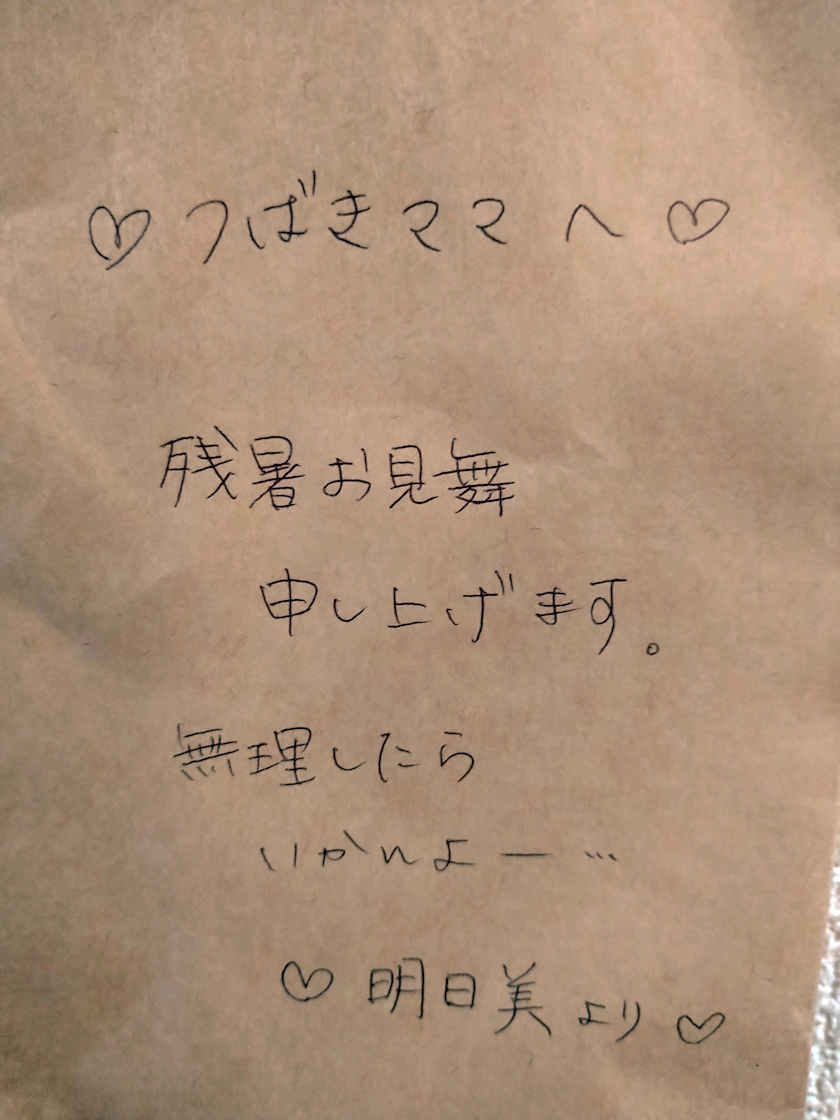 ♡つばきママへ♡
残暑お見舞
申し上げます。
無理したら
いかんよー…
♡明日美より♡